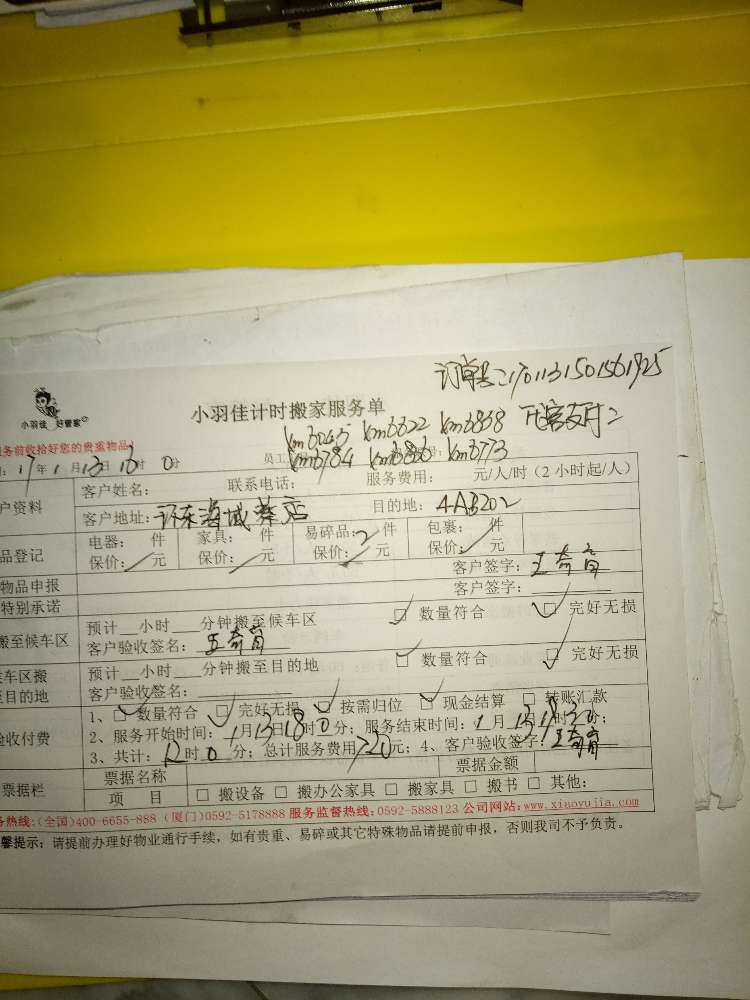 订单号:1701131501561925
小羽佳 好管家
小羽佳计时搬家服务单
km6622 km6868
务前收拾好您的贵重物品
km6784 km6686 km6773
17年1月13日 时0分 员工
客户姓名: 联系电话: 服务费用: 元/人/时(2小时起/人)
户资料
客户地址: 目的地:4AB202
电器: 件 家具: 件 易碎品: 件 包裹: 件
品登记
保价: 元 保价: 元 保价: 元 保价: 元
物品申报 客户签字:
特别承诺 客户签字:
预计 小时 分钟搬至候车区 □ 数量符合 □ 完好无损
搬至候车区
客户验收签名:
车区搬 预计 小时 分钟搬至目的地 □ 数量符合 □ 完好无损
至目的地 客户验收签名:
1、□ 数量符合 □ 完好无损 □ 按需归位 □ 现金结算 □ 转账汇款
验收付费 2、服务开始时间:1月13日18时0分;服务结束时间:1月13日 时 分;
3、共计:12时0分;总计服务费用720元;4、客户验收签字:
票据名称 票据金额
票据栏
项 目 □ 搬设备 □ 搬办公家具 □ 搬家具 □ 搬书 □ 其他:
务热线:(全国)400-6655-888 (厦门)0592-5178888 服务监督热线:0592-5888123 公司网站:www.xiaoyujia.com
馨提示:请提前办理好物业通行手续,如有贵重、易碎或其它特殊物品请提前申报,否则我司不予负责。